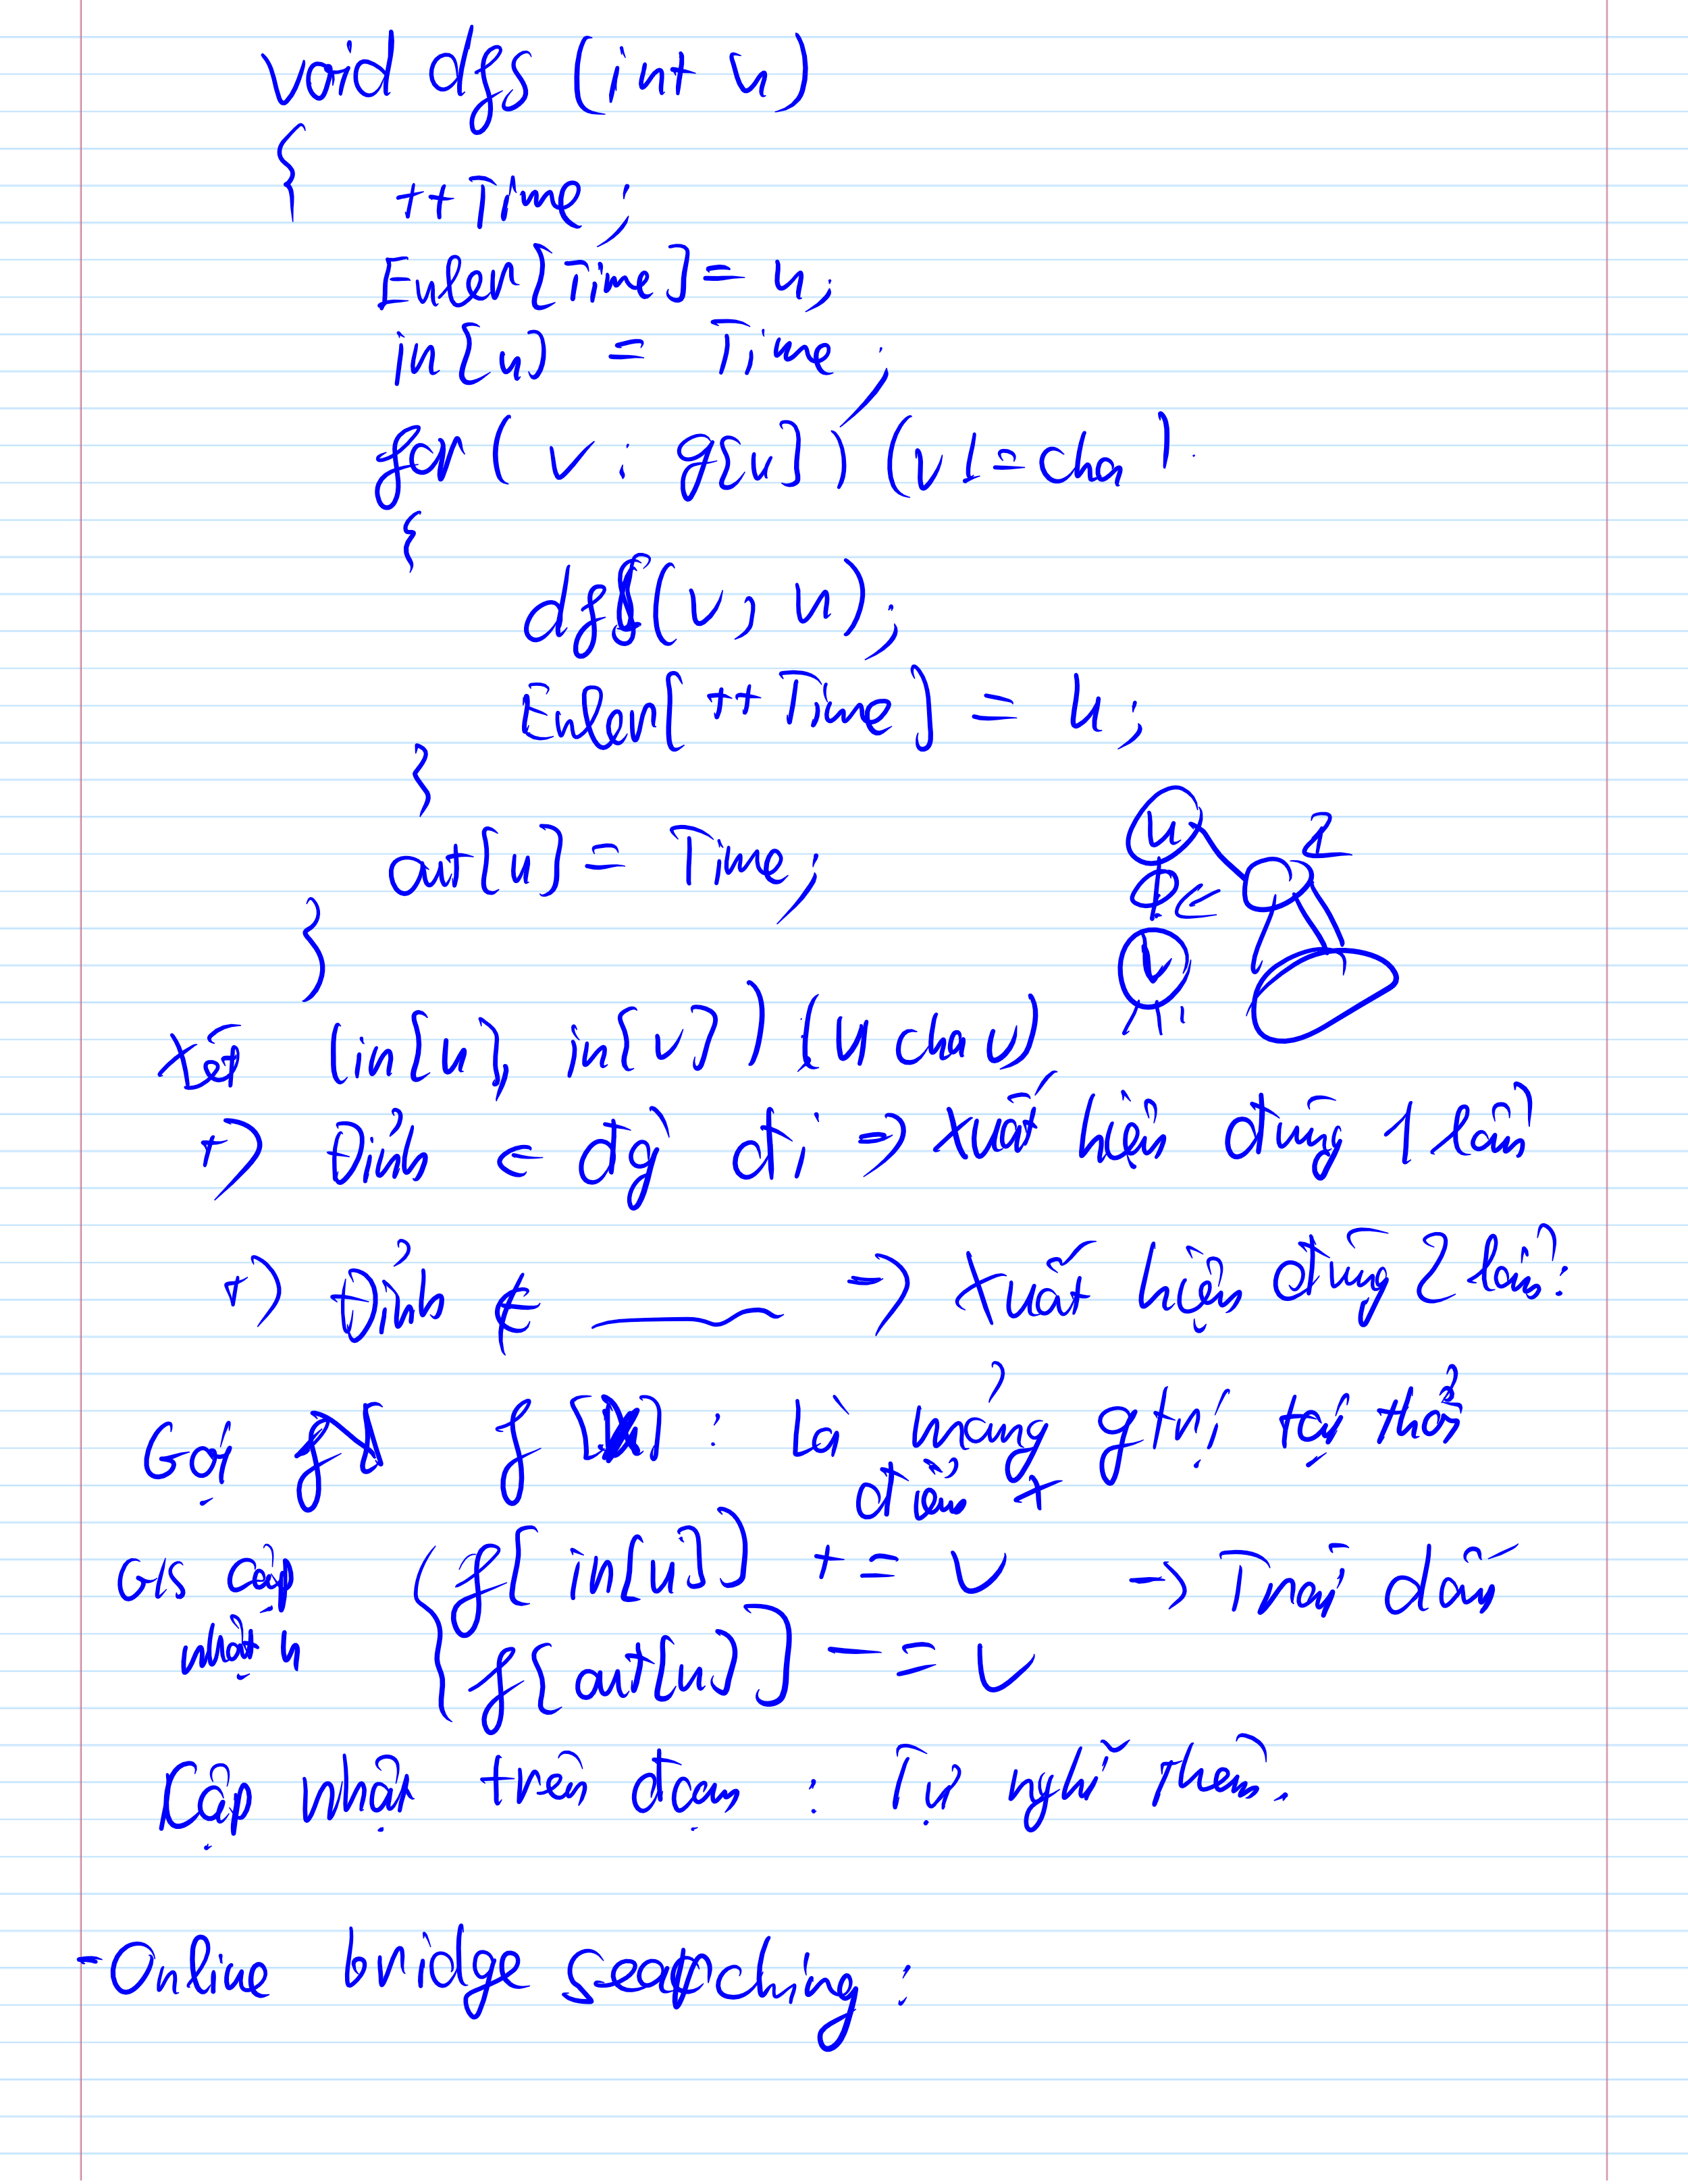 void dfs (int u)
{
++Time;
Euler[Time] = u;
in[u] = Time;
for ( v : g[u]) (v != cha)
{
dfs(v, u);
Euler[++Time] = u;
}
out[u] = Time;
}
u
1
v
Xét (in[u], in[v]) (u cha v)
+) Đỉnh ∈ đg đi => xuất hiện đúng 1 lần
+) Đỉnh ∉ ______ => xuất hiện đúng 2 lần.
Gọi f[]: là mảng gtrị tại thời
điểm x
G/s cập nhật u
{ f[in[u]] += v => Trải dấu
f[out[u]] -= v
Cập nhật trên đoạn : Tự nghĩ thêm.
- Online bridge searching: